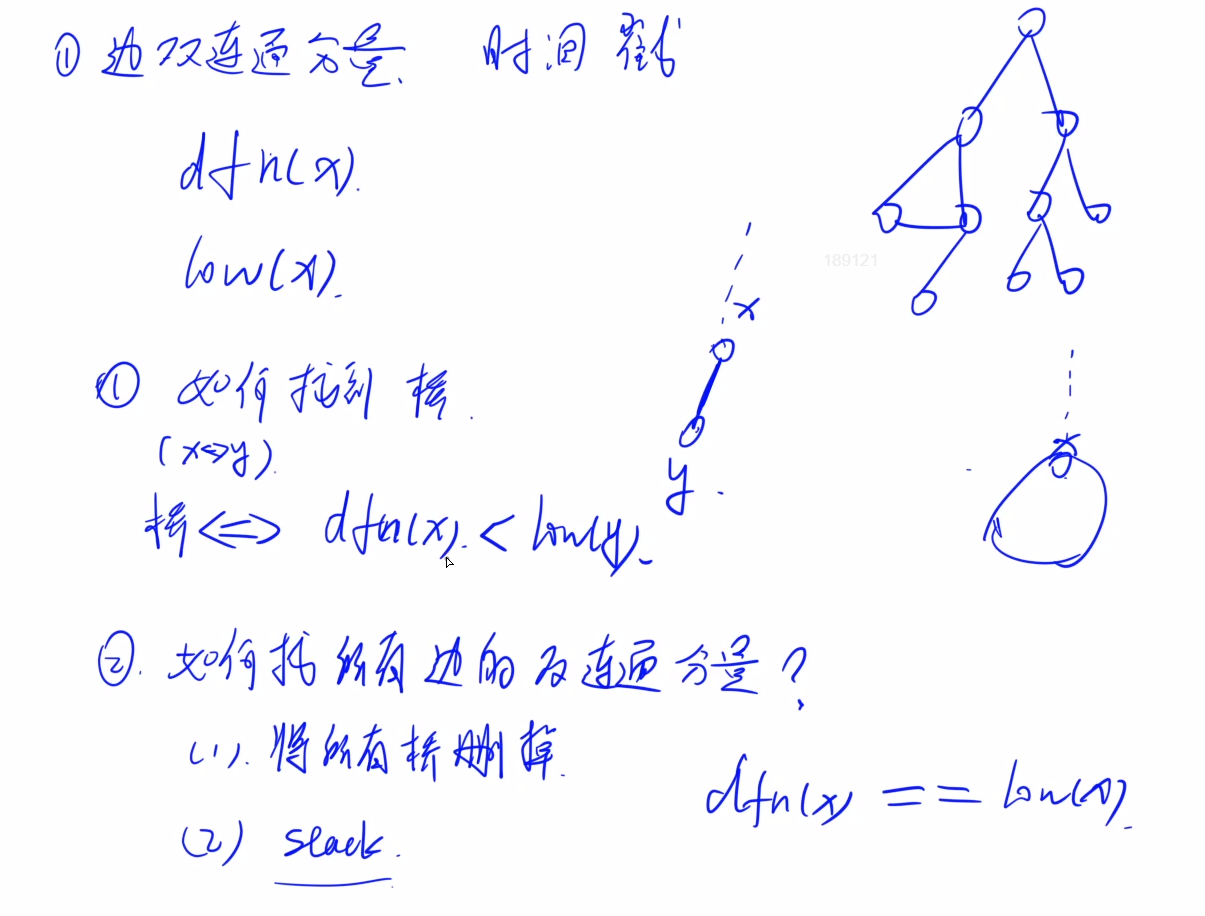 ① 边双连通分量. 时间戳
dfn(x).
low(x).
189121
x
① 如何找到桥.
(x⇔y).
y.
x
桥 ⇔ dfn(x). < low(y).
②. 如何找所有边的双连通分量?
(1). 将所有桥删掉.
dfn(x) == low(x).
(2) stack.